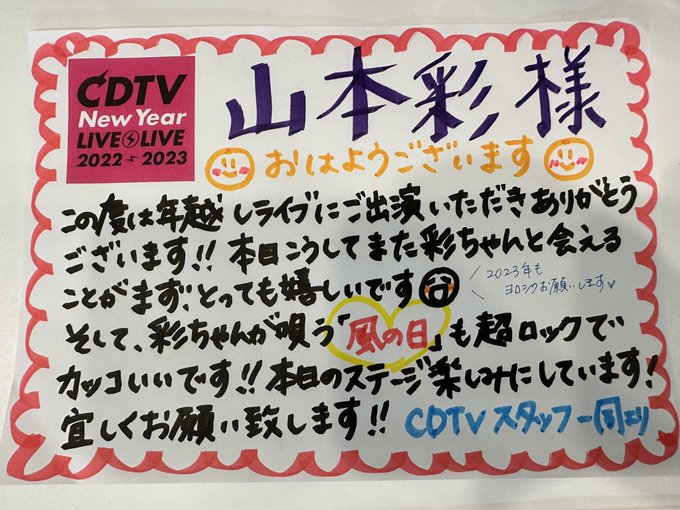 CDTV
New Year
LIVE LIVE
2022-2023
山本彩様
おはようございます
この度は年越しライブにご出演いただきありがとう
ございます!! 本日こうしてまた彩ちゃんと会える
ことがまず、とっても嬉しいです
2023年も
ヨロシクお願いします♡
そして、彩ちゃんが唄う「風の日」も超ロックで
カッコいいです!! 本日のステージ楽しみにしています!
宜しくお願い致します!! CDTVスタッフ一同より